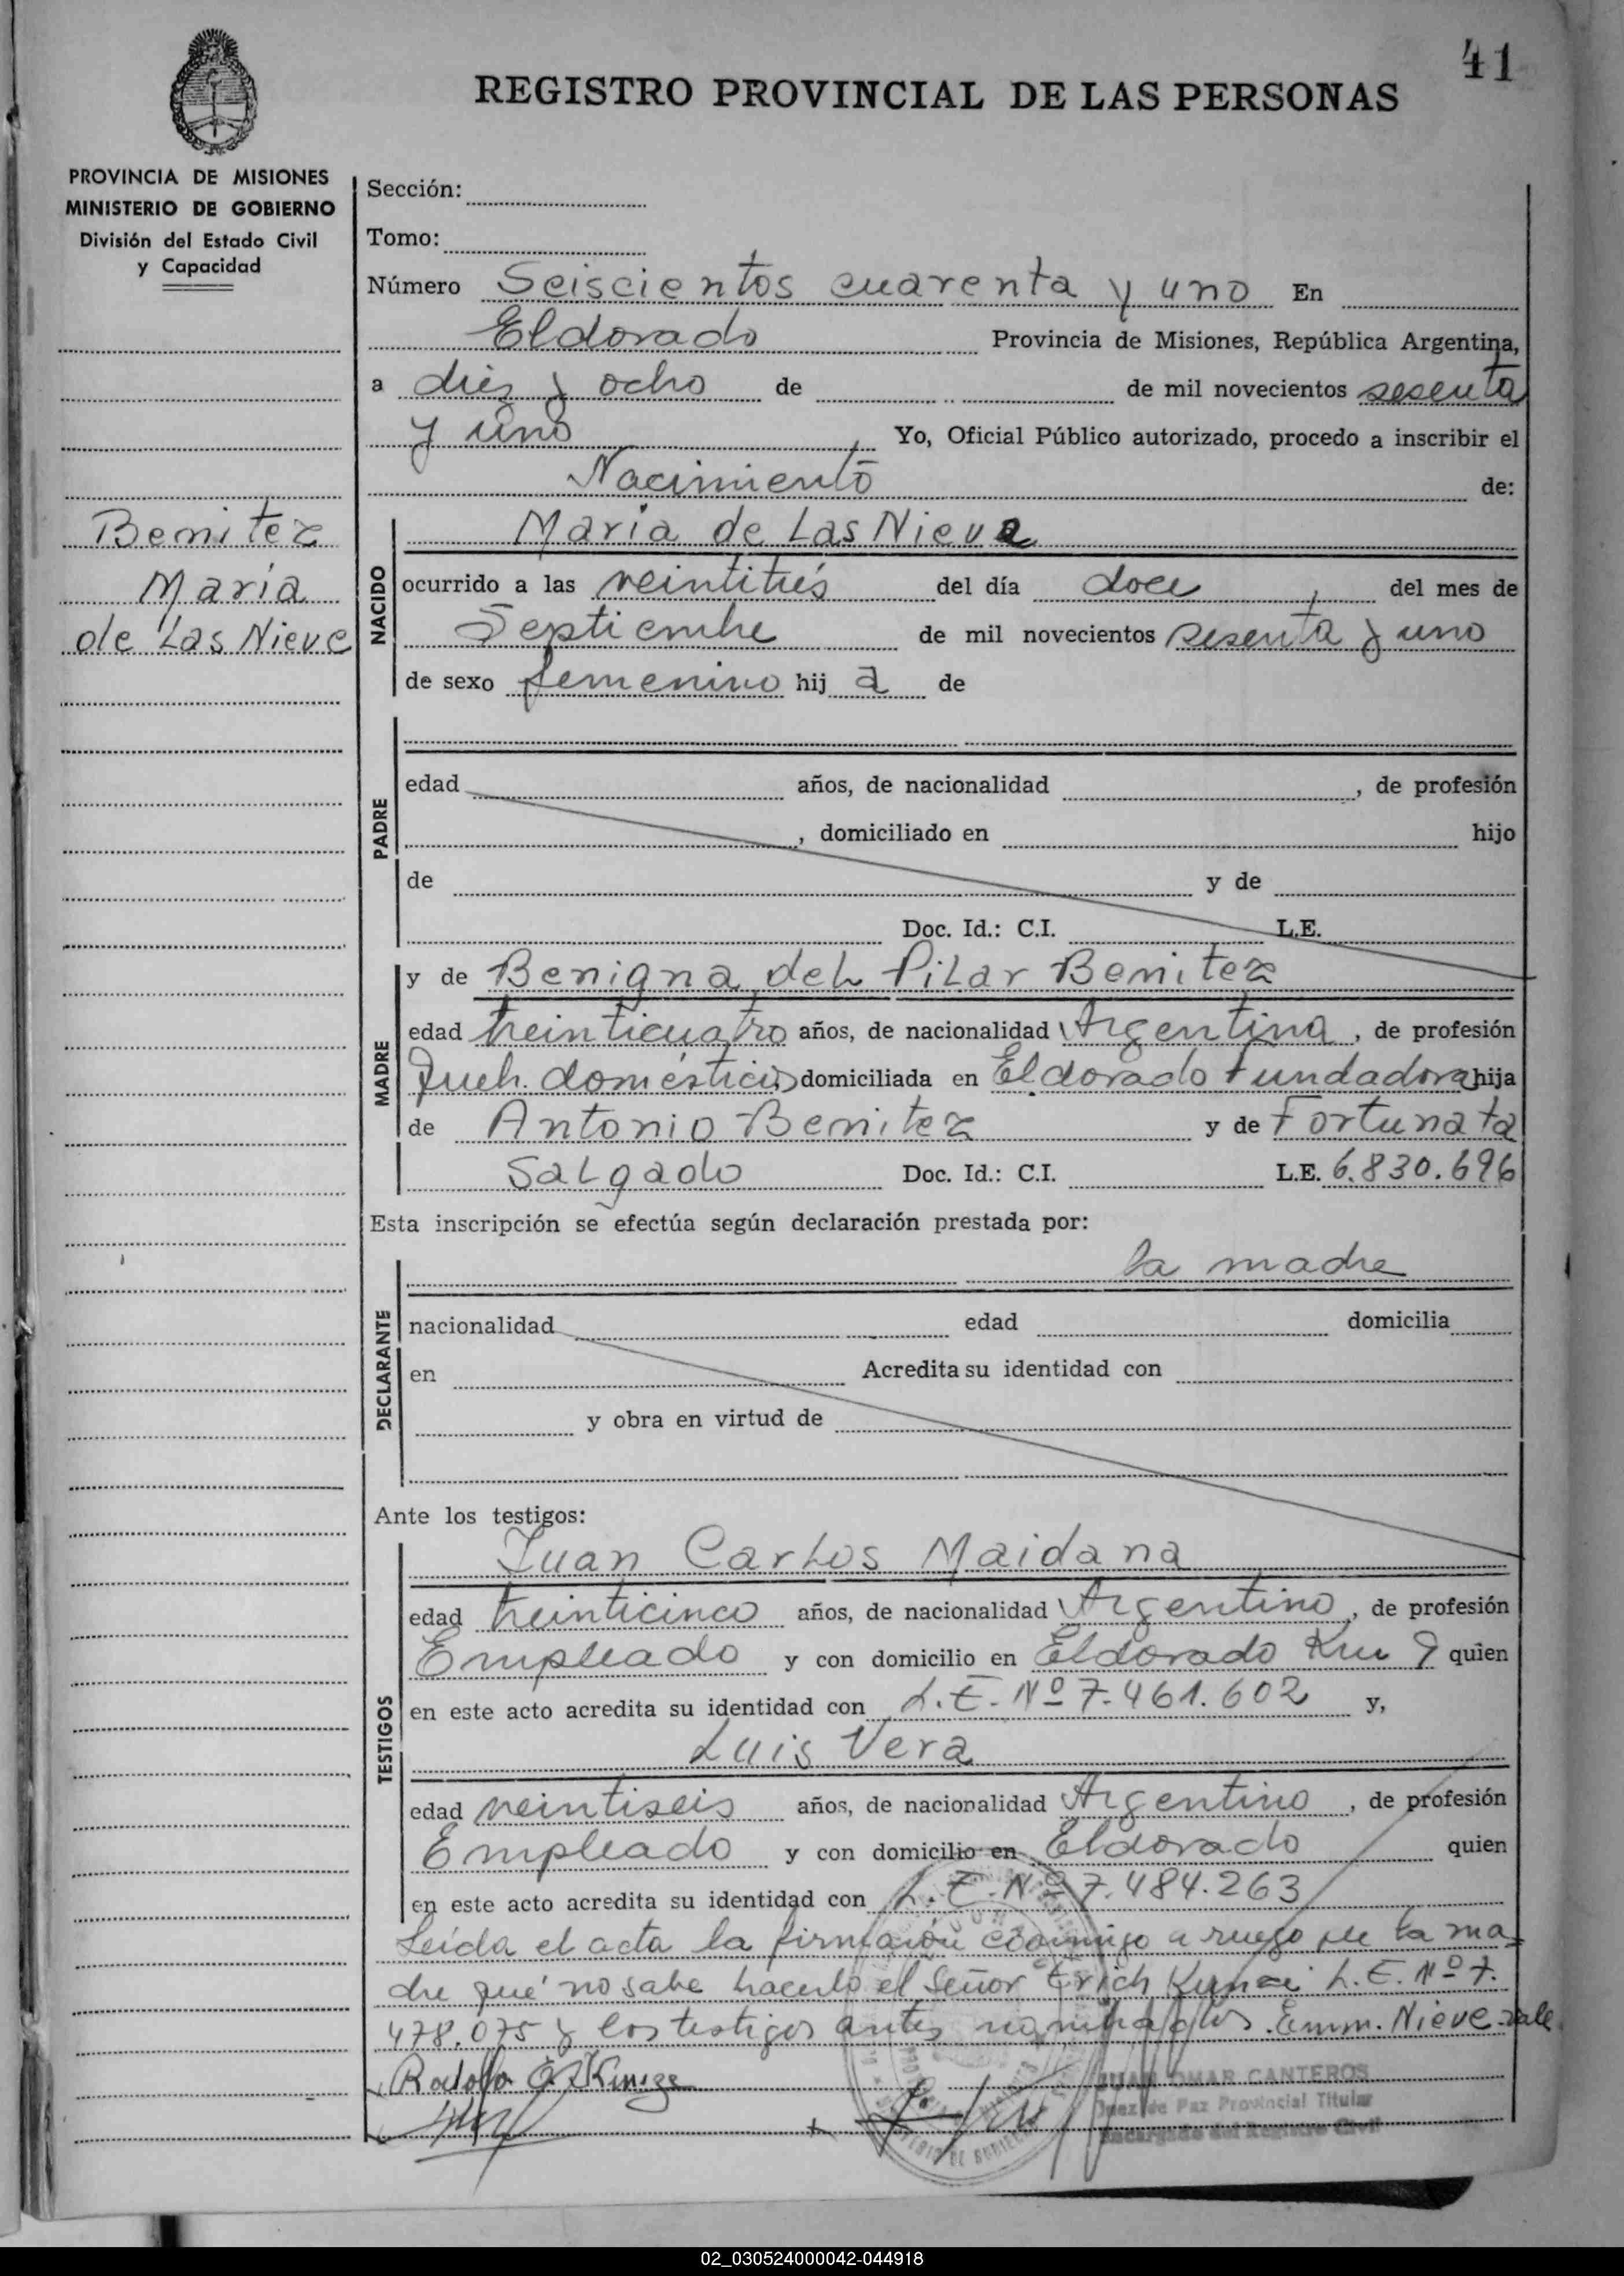 41
REGISTRO PROVINCIAL DE LAS PERSONAS
PROVINCIA DE MISIONES
MINISTERIO DE GOBIERNO
División del Estado Civil
y Capacidad
Benitez
María
de Las Nieve
Sección:
Tomo:
Número Seiscientos cuarenta y uno En
Eldorado Provincia de Misiones, República Argentina,
a diez y ocho de de mil novecientos sesenta
y uno Yo, Oficial Público autorizado, procedo a inscribir el
Nacimiento de:
NACIDO
María de Las Nieve
ocurrido a las veintitrés del día doce del mes de
Septiembre de mil novecientos sesenta y uno
de sexo femenino hij a de
PADRE
edad años, de nacionalidad , de profesión
, domiciliado en hijo
de y de
Doc. Id.: C.I. L.E.
MADRE
y de Benigna del Pilar Benitez
edad treinticuatro años, de nacionalidad Argentina, de profesión
Queh. domésticos domiciliada en Eldorado Fundadora hija
de Antonio Benitez y de Fortunata
Salgado Doc. Id.: C.I. L.E. 6.830.696
Esta inscripción se efectúa según declaración prestada por:
DECLARANTE
la madre
nacionalidad edad domicilia
en Acredita su identidad con
y obra en virtud de
Ante los testigos:
TESTIGOS
Juan Carlos Maidana
edad treinticinco años, de nacionalidad Argentino, de profesión
Empleado y con domicilio en Eldorado Km 9 quien
en este acto acredita su identidad con L.E. Nº 7.461.602 y,
Luis Vera
edad veintiseis años, de nacionalidad Argentino, de profesión
Empleado y con domicilio en Eldorado quien
en este acto acredita su identidad con L.E. Nº 7.484.263
Leída el acta la firmaron conmigo a ruego de la ma
dre que no sabe hacerlo el Señor Erich L.E. Nº 7.
478.075 y los testigos antes nombrados. Enm. Nieve vale.
Rodolfo
JUAN OMAR CANTEROS
Juez de Paz Provincial Titular
Encargado del Registro Civil
02_030524000042-044918